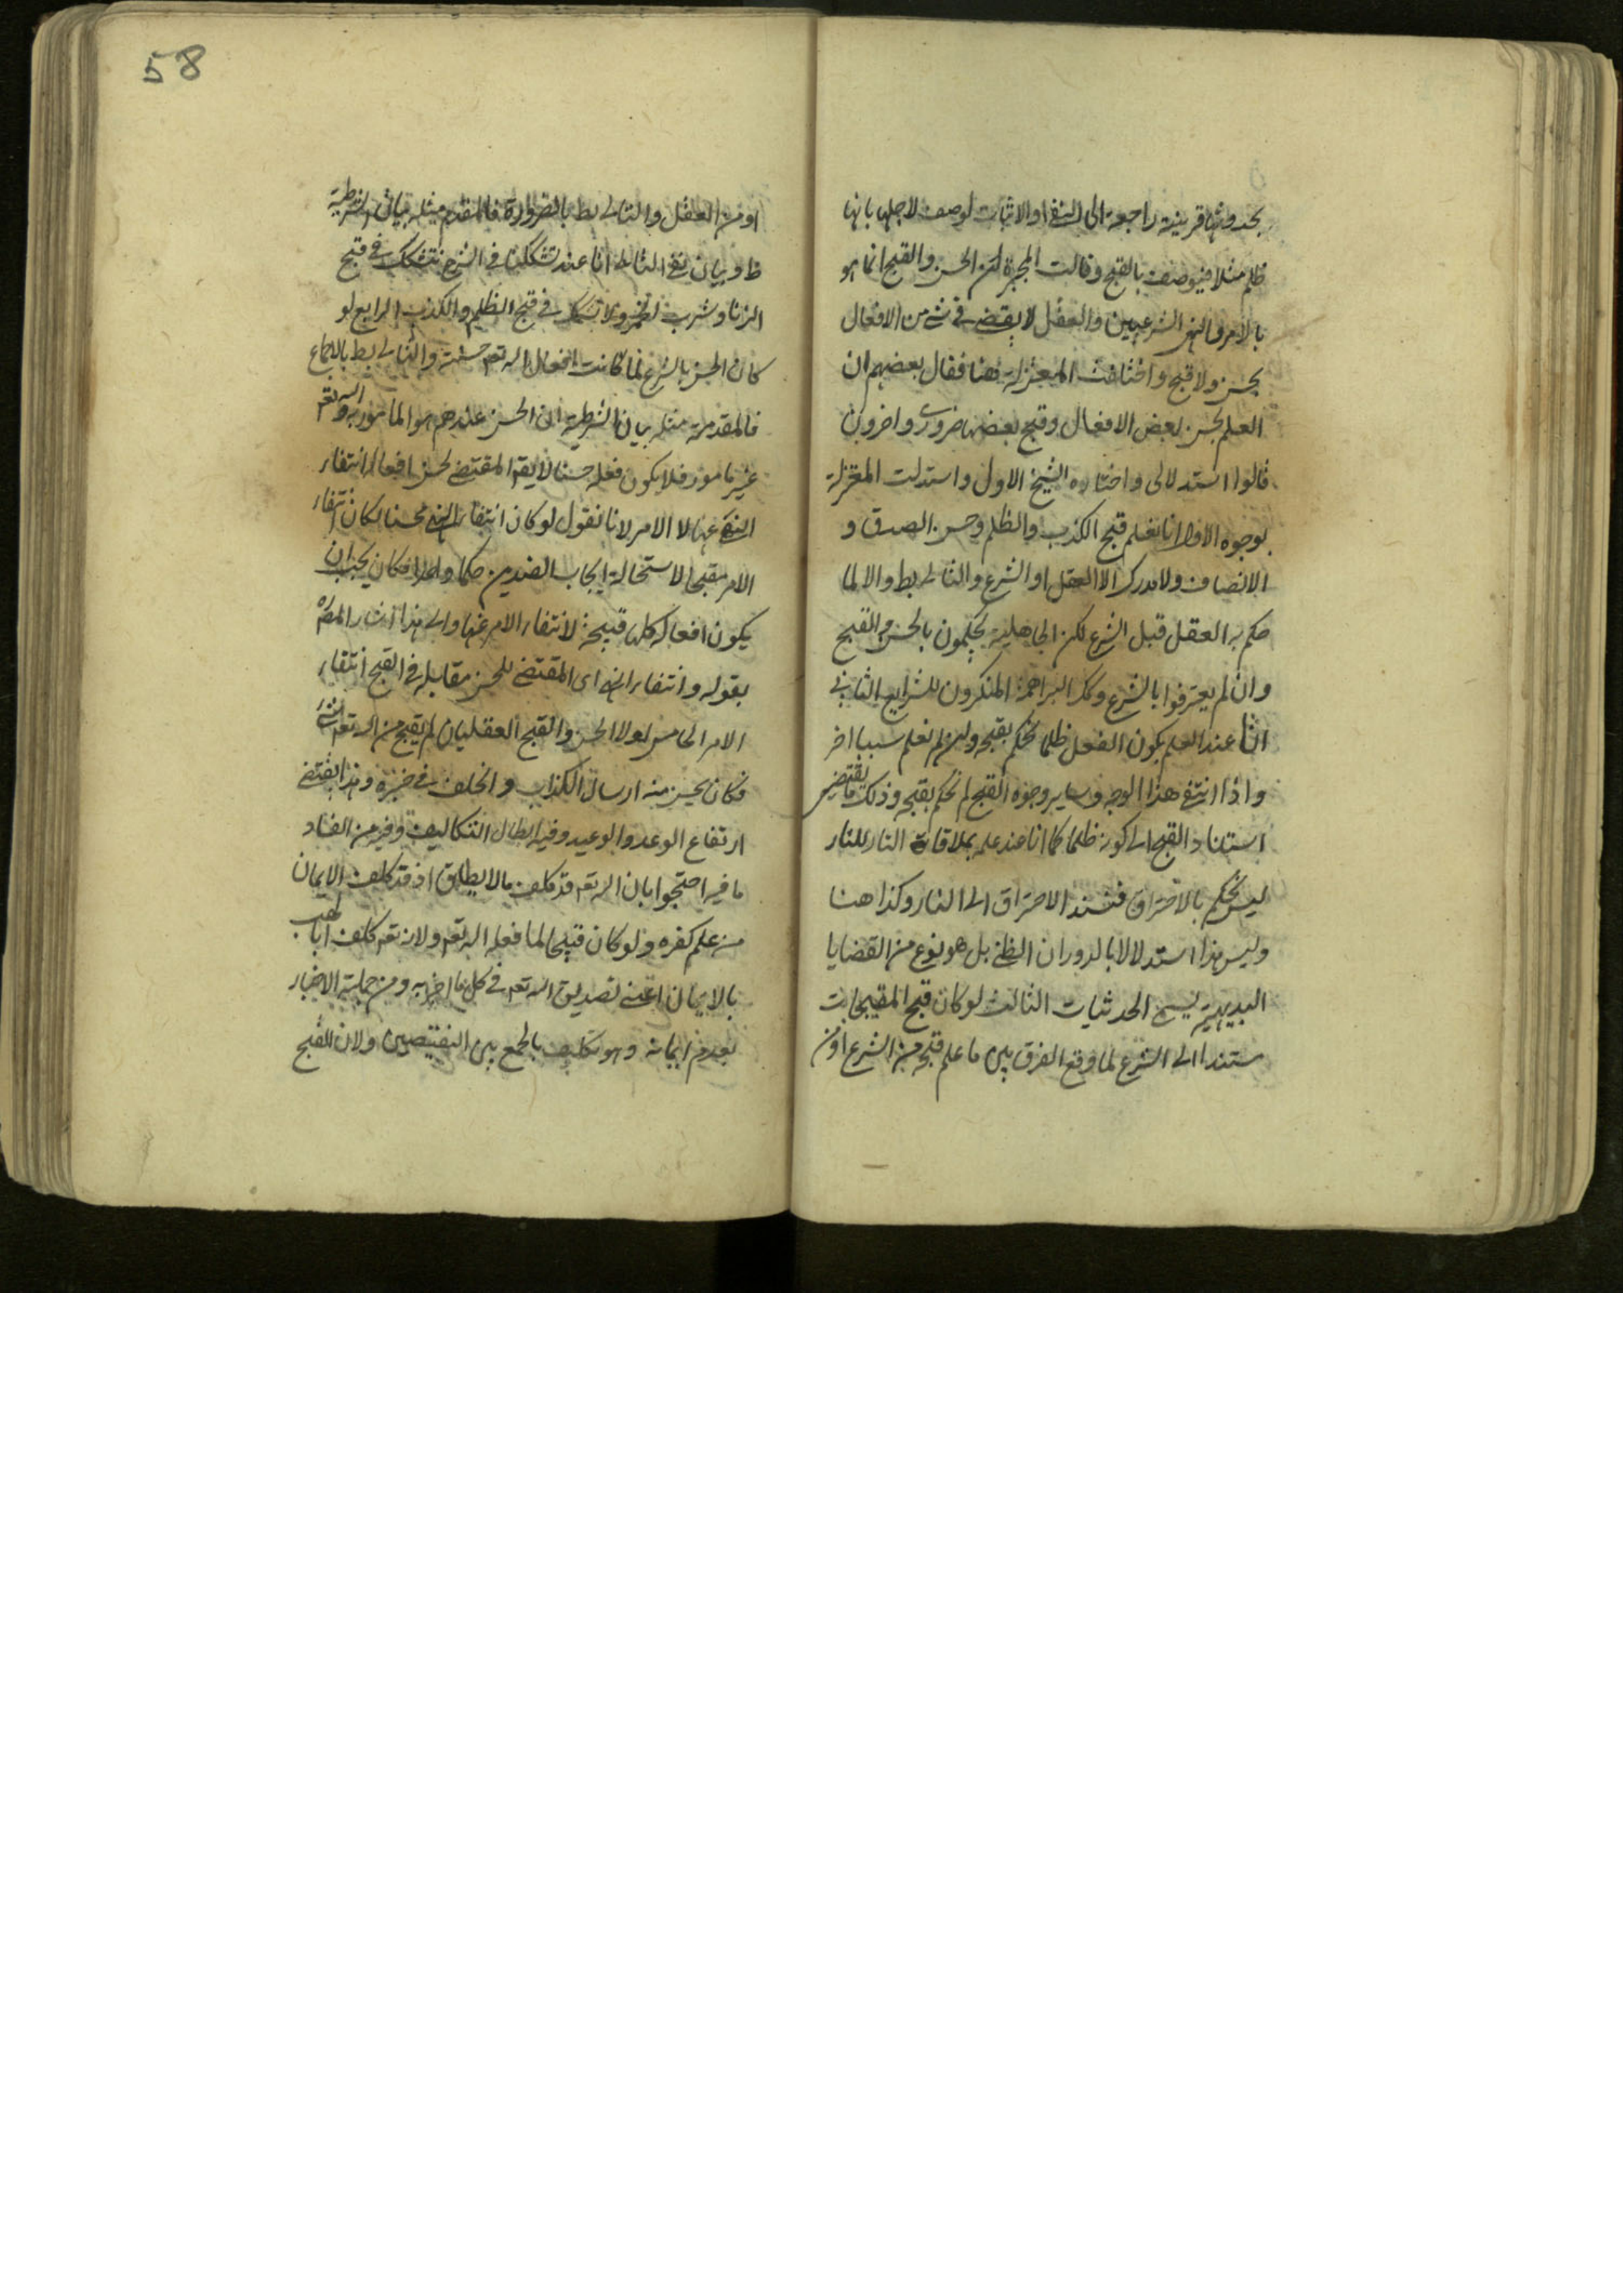 بحدوثها قرينة راجعة الى النفى او الاثبات لوصف لاجلها بانها
ظلم مثلا فيوصف بالقبح وقالت المجبرة ان الحسن والقبح انما هو
بالامر والنهى الشرعيين والعقل لا يقضى فى شئ من الافعال
بحسن ولا قبح واختلفت المعتزلة هنا فقال بعضهم ان
العلم بحسن بعض الافعال وقبح بعضها ضرورى واخرون
قالوا استدلالى واختاره الشيخ الاول واستدلت المعتزلة
بوجوه الاول انا نعلم قبح الكذب والظلم وحسن الصدق و
الانصاف ولا مدرك الا العقل او الشرع والثانى بط والا لما
حكم به العقل قبل الشرع لكن الجاهلية يحكمون بالحسن والقبح
وان لم يعترفوا بالشرع وكك البراهمة المنكرون للشرايع الثانى
انا عند العلم بكون الفعل ظلما نحكم بقبحه وان لم نعلم سببا اخر
واذا انتفى هذا الوجه وساير وجوه القبح لم نحكم بقبحه وذلك مما يقتضى
استناد القبح الى كونه ظلما كما انا عند علمه بملاقاة النار للنار
ليس نحكم بالاحتراق فنسند الاحتراق الى النار وكذا هنا
وليس هذا استدلالا بالدوران الظنى بل هو نوع من القضايا
البديهية يسمى الحدثيات الثالث لو كان قبح المقبحات
مستندا الى الشرع لما وقع الفرق بين ما علم قبحه من الشرع او من
58
او من العقل والتالى بط بالضرورة فالمقدم مثله بيان الشرطية
ظ وبيان نفى التالى انا عند تشككنا فى الشرع نتشكك فى قبح
الزنا وشرب الخمر ولا نتشكك فى قبح الظلم والكذب الرابع لو
كان الحسن بالشرع لما كانت افعال الله تعم حسنة والتالى بط بالاجماع
فالمقدم مثله بيان الشرطية ان الحسن عندهم هو المامور به والله تعم
غير مامور فلا يكون فعله حسنا لا يقم المقتضى لحسن افعاله انتفاء
النهى عنها لا الامر لانا نقول لو كان انتفاء النهى محسنا لكان انتفاء
الامر مقبحا لاستحالة ايجاب الضدين حكما واحدا فكان يجب ان
يكون افعاله كلها قبيحة لانتفاء الامر عنها والى هذا اشار المص ره
بقوله وانتفاء النهى اى المقتضى للحسن مقابله فى القبح انتفاء
الامر الخامس لولا الحسن والقبح العقليان لم يقبح من الله تعم شئ
فكان يحسن منه ارسال الكذاب والخلف فى خبره وهذا يقتضى
ارتفاع الوعد والوعيد وفيه ابطال التكاليف وفيه من الفساد
ما فيه احتجوا بان الله تعم قد كلف ما لا يطاق اذ قد كلف الايمان
من علم كفره ولو كان قبيحا لما فعله الله تعم ولانه تعم كلف ابا لهب
بالايمان اعنى تصديق الله تعم فى كل ما اخبر به ومن جملة الاخبار
بعدم ايمانه وهو تكليف بالجمع بين النقيضين ولان القبح